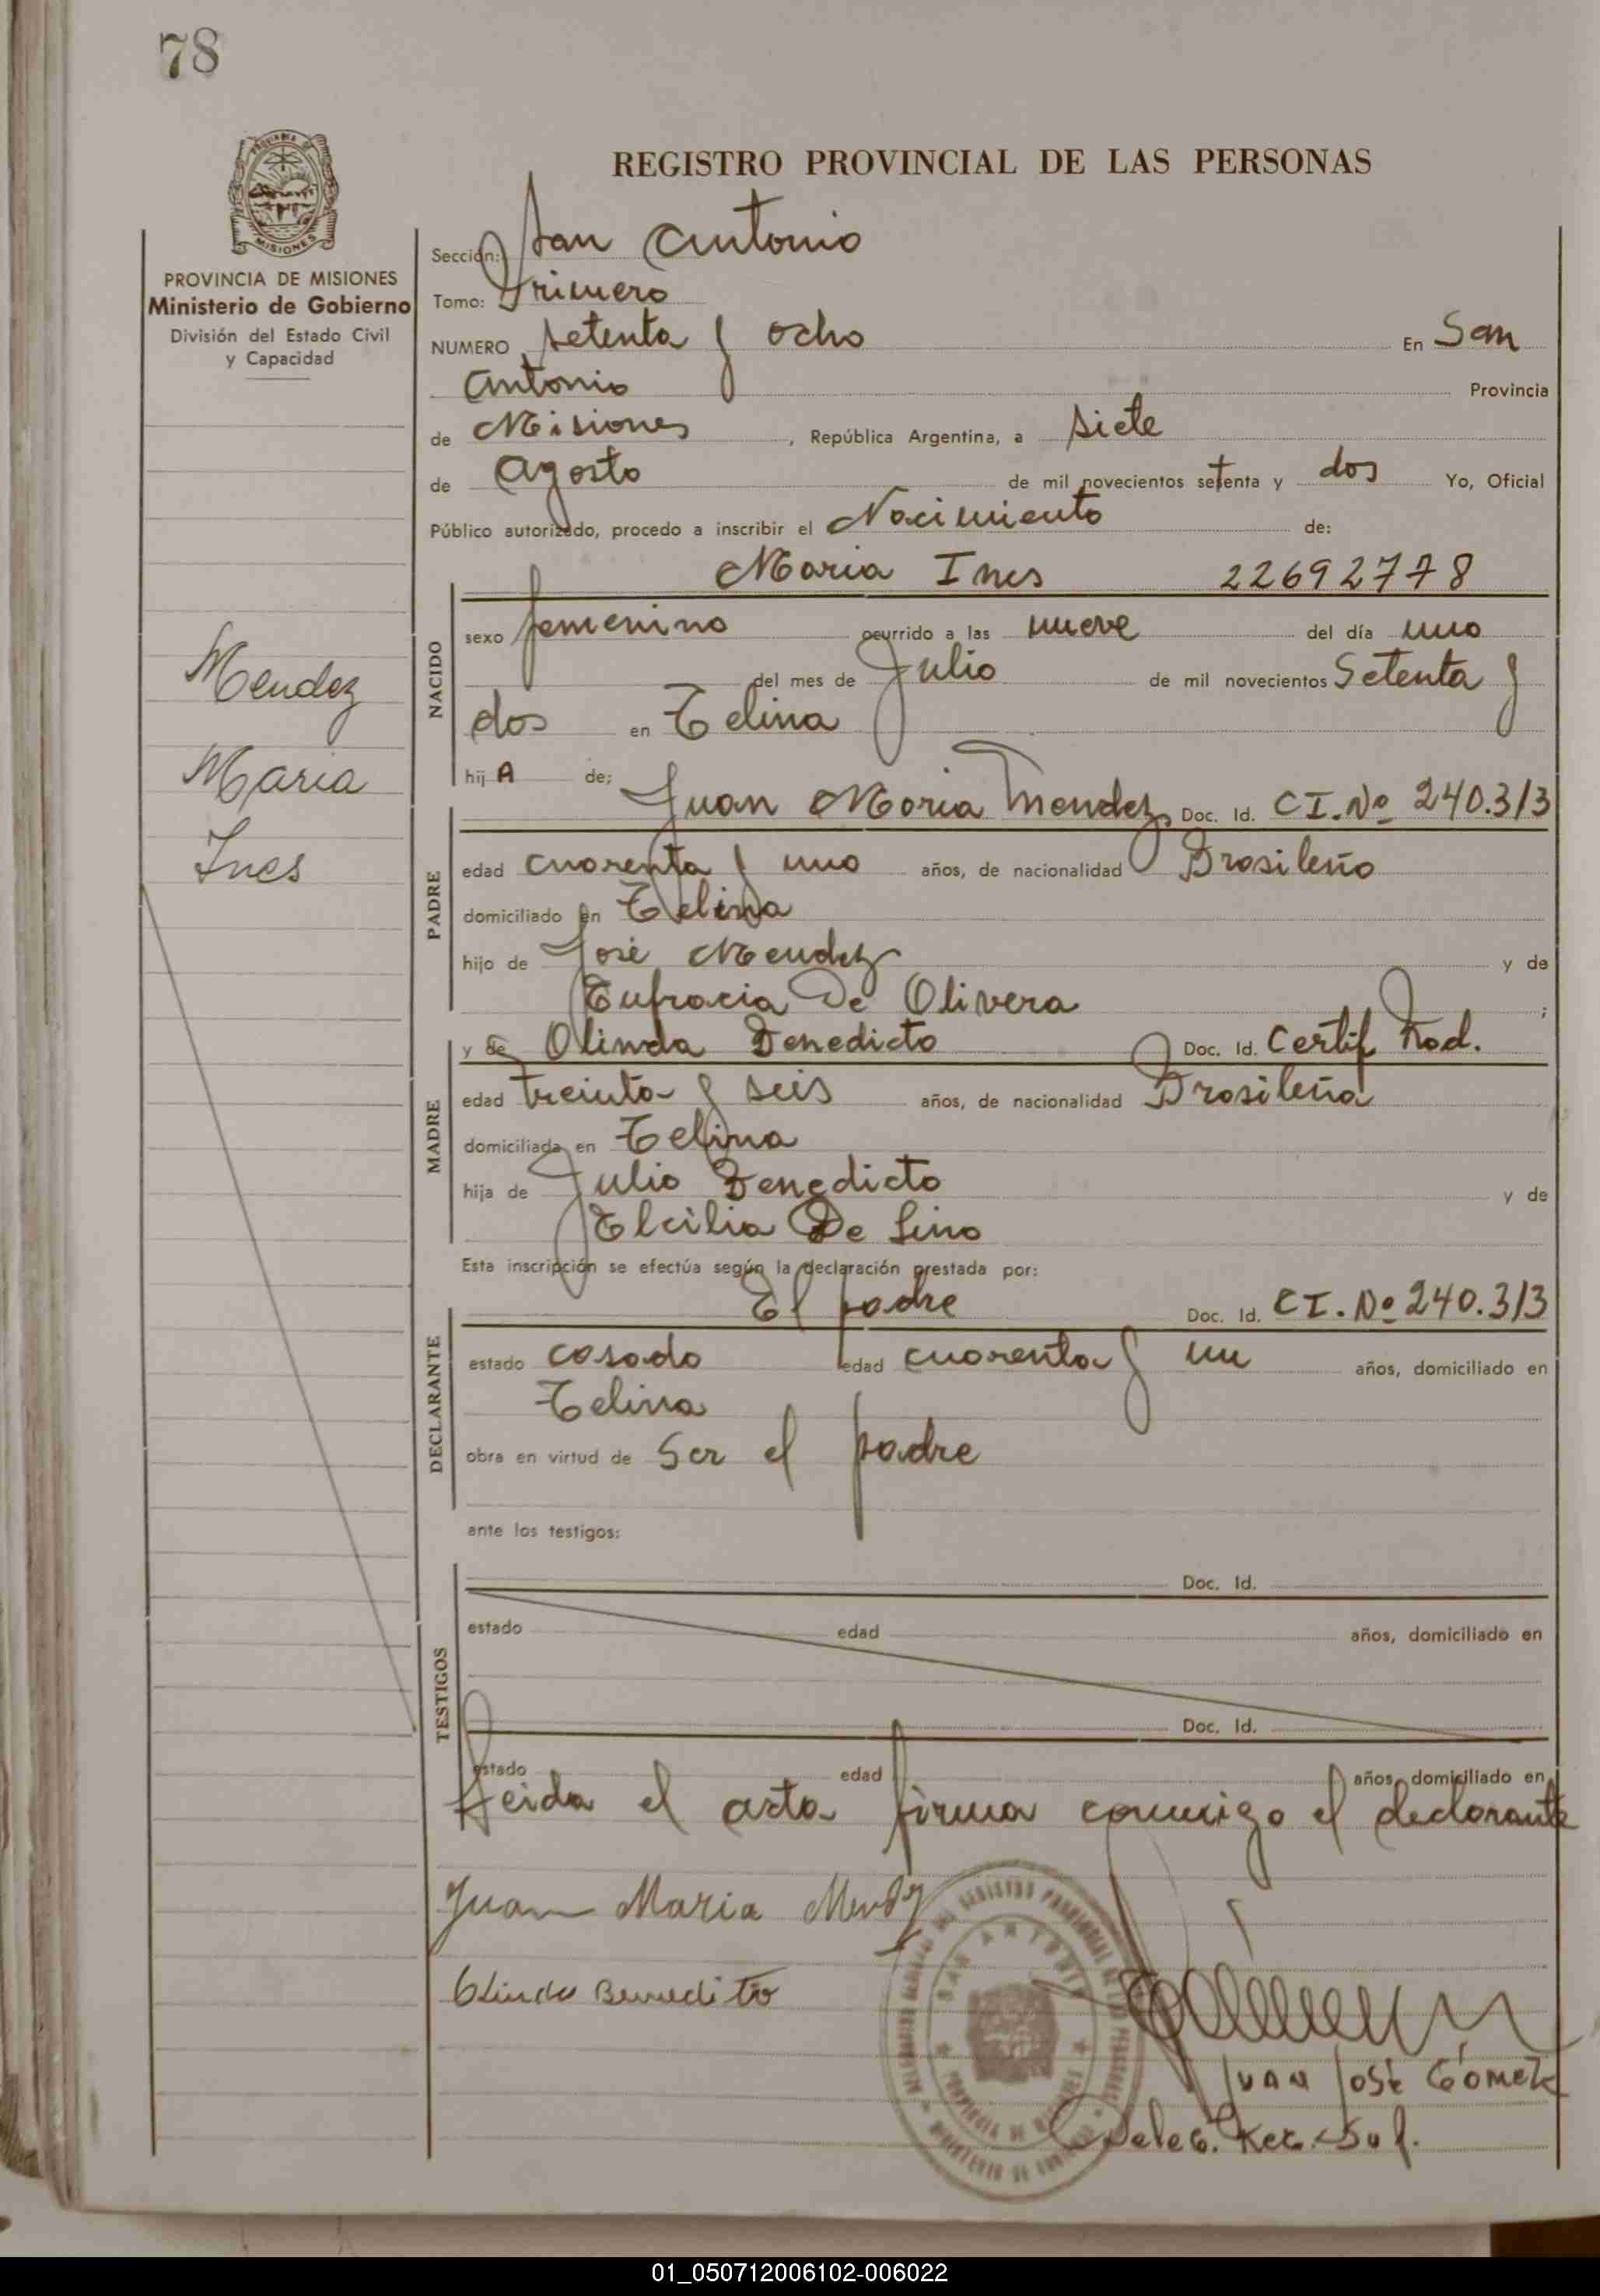 78
REGISTRO PROVINCIAL DE LAS PERSONAS
PROVINCIA DE MISIONES
Ministerio de Gobierno
División del Estado Civil
y Capacidad
Sección: San Antonio
Tomo: Primero
NUMERO Setenta y ocho En San
Antonio Provincia
de Misiones, República Argentina, a siete
de Agosto de mil novecientos setenta y dos Yo, Oficial
Público autorizado, procedo a inscribir el Nacimiento de:
Maria Ines 22692778
NACIDO
sexo femenino ocurrido a las nueve del día uno
del mes de Julio de mil novecientos Setenta y
dos en Celina
hij A de:
Mendez
Maria
Ines
Juan Maria Mendez Doc. Id. CI. Nº 240.313
PADRE
edad cuarenta y uno años, de nacionalidad Brasileño
domiciliado en Celina
hijo de José Mendez y de
Eufracia De Olivera ;
y de Olinda Benedicto Doc. Id. Certif Nad.
MADRE
edad treinta y seis años, de nacionalidad Brasileña
domiciliada en Celina
hija de Julio Benedicto y de
Elcilia De Lino
Esta inscripción se efectúa según la declaración prestada por:
El padre Doc. Id. CI. Nº 240.313
DECLARANTE
estado casado edad cuarenta y un años, domiciliado en
Celina
obra en virtud de Ser el padre
ante los testigos:
TESTIGOS
Doc. Id.
estado edad años, domiciliado en
Doc. Id.
estado edad años, domiciliado en
Leida el acta firma conmigo el declarante
Juan Maria Mendez
Olinda Benedito
SAN ANTONIO
PROVINCIA DE MISIONES
JUAN JOSÉ GÓMEZ
Deleg.
01_050712006102-006022